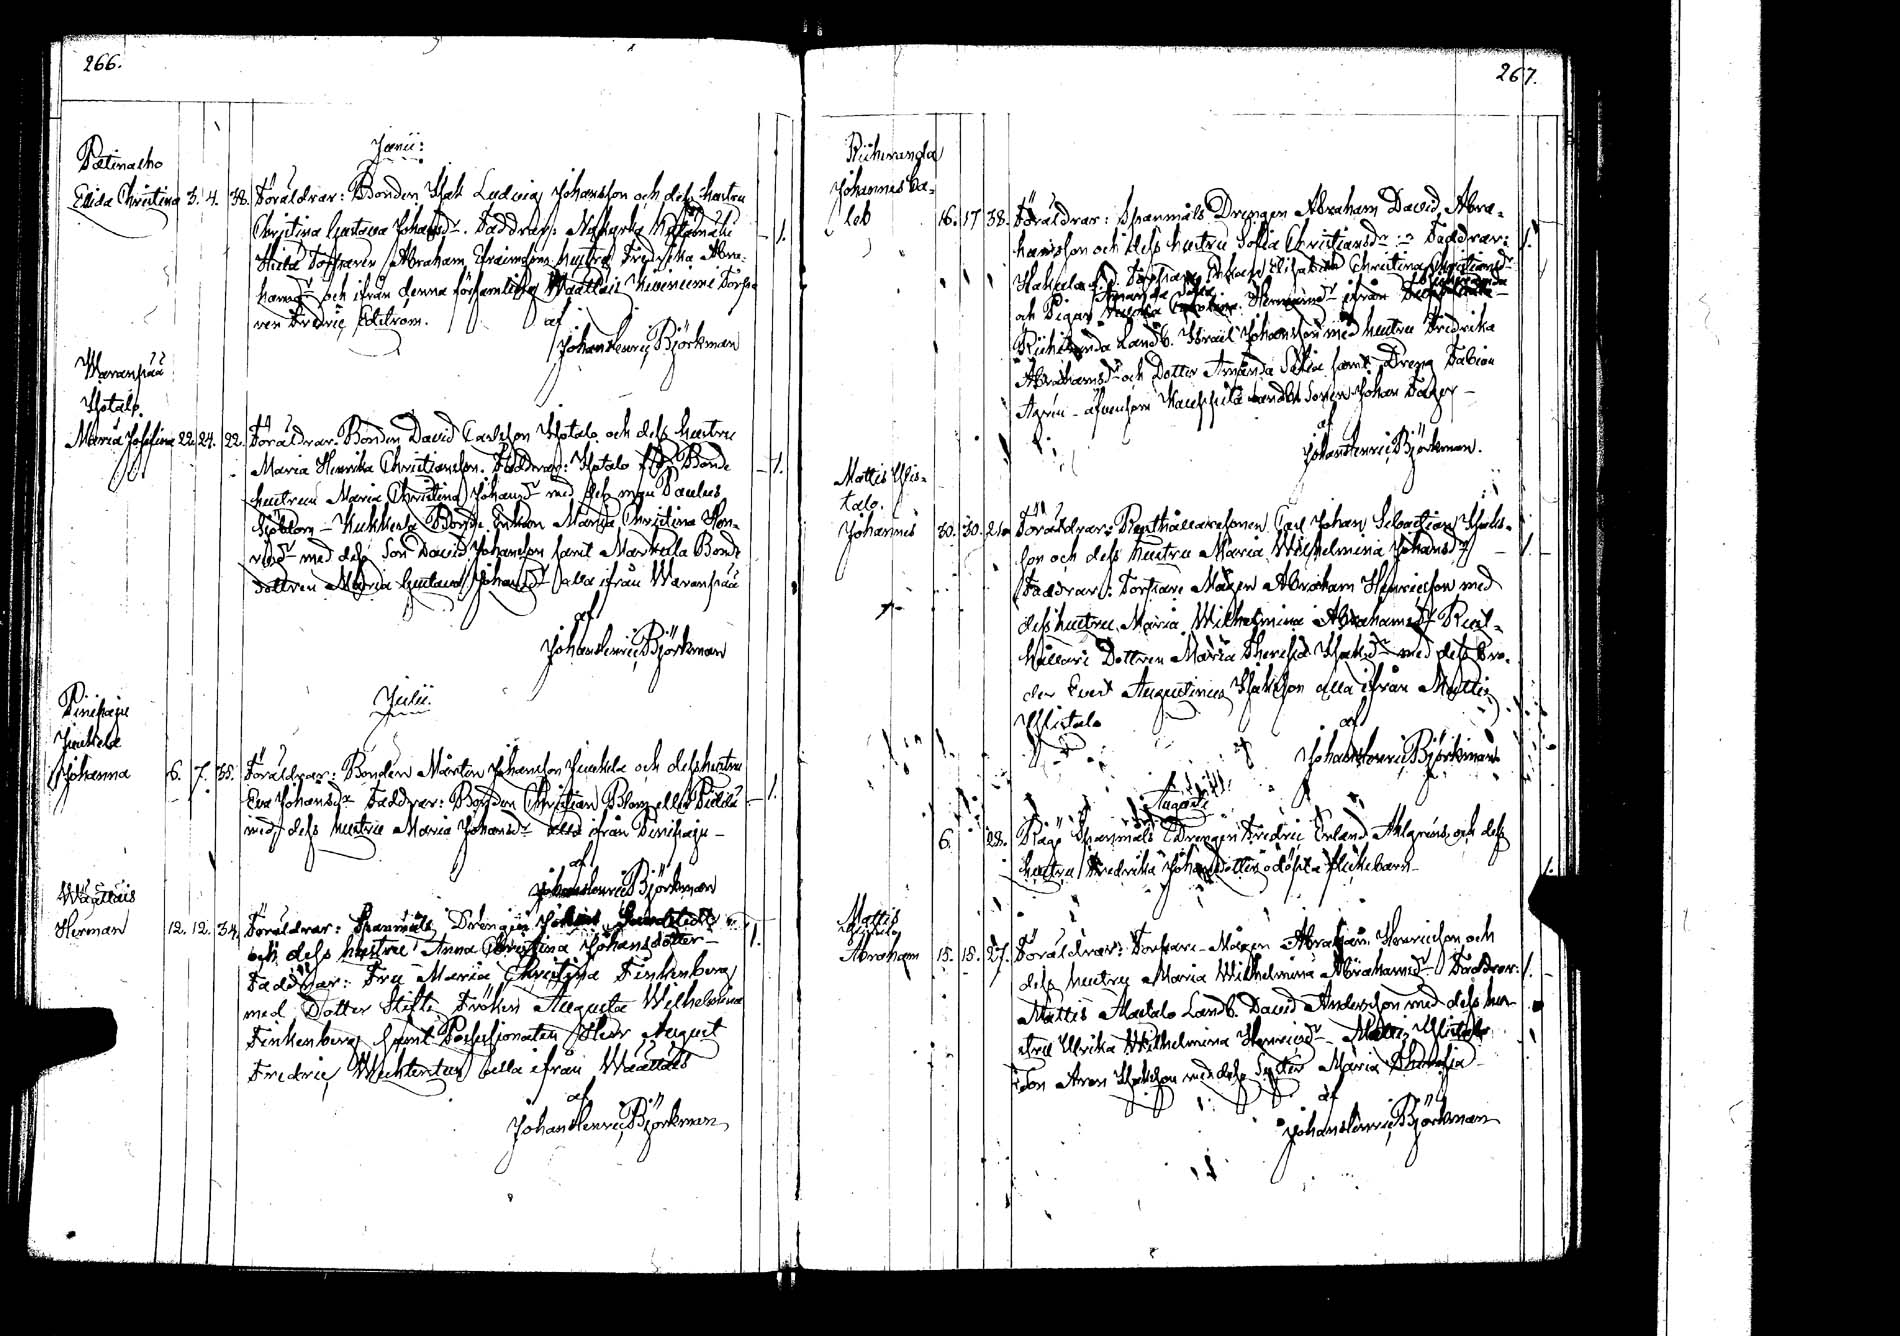 266.
Junii:
Pätinacho
Elida Christina 3. 4. 38. Föräldrar: Bonden Isak Ludvig Johansson och dess hustru
Christina Gustava Johansdr. Faddrar:
Torparen Abraham Efraimssons hustru Fredrika Abra-
hamsdr och ifrån denna församling Waattais Kiviniemi Torpa-
ren Fredric Edström.
af
Johan Henric Björkman
Waranpää
Isotalo
Maria Josefina 22. 24. 22. Föräldrar: Bonden David Carlsson Isotalo och dess hustru
Maria Henrika Christiansson. Faddrar: Isotalo Bonde
hustrun Maria Christina Johansdr med dess man Paulus
Sjöblom – Kukkola Bonde Enkan Maria Christina Hen-
ricsdr med dess Son David Johansson samt Markula Bonde
dottren Maria Gustava Johansdr alla ifrån Waranpää
af
Johan Henric Björkman
Julii.
Pinipaju
Juukola
Johanna 6. 7. 35. Föräldrar: Bonden Mårten Johansson Juukola och dess hustru
Eva Johansdr Faddrar: Bonden Christian Blom eller Pidilä
med dess hustru Maria Johansdr alla ifrån Pinipaju –
af
Johan Henric Björkman
Waattais
Herman 12. 12. 34. Föräldrar: Spanmåls Drengen Johan
och dess hustru Anna Christina Johansdotter –
Faddrar: Fru Maria Christina Finkenberg
med Dotter Stifts Fröken Augusta Wilhelmina
Finkenberg samt Possessionaten Herr August
Fredric alla ifrån Waattais
af
Johan Henric Björkman
267.
Riihiranda
Johannes Ca-
lob 16. 17 38. Föräldrar: Spanmåls Drengen Abraham David Abra-
hamsson och dess hustru Sofia Christiansdr Faddrar:
Hakula Enkan Elisabeth Christina Christiansdr
Amanda Sofia
och Pigan Hermansdr ifrån
Riihiranda Landb. Israel Johansson med hustru Fredrika
Abrahamsdr och Dotter Amanda Sofia samt Dreng Fabian
Agrén – äfvensom Kauppila Landb. Sonen Johan Fager –
af
Johan Henric Björkman.
Mattis Ylis-
talo.
Johannes 30. 30. 21. Föräldrar: Rusthållaresonen Carl Johan Sebastian Isaks-
son och dess hustru Maria Wilhelmina Johansdr
Faddrar: Torpare Mågen Abraham Henricsson med
dess hustru Maria Wilhelmina Abrahamsdr Rust-
hållare Dottren Maria Theresia Isaksdr med dess bro-
der Evert Augustinus Isaksson alla ifrån Mattis
Ylistalo
af
Johan Henric Björkman
Augusti
6. 28. Spanmåls Drengen Fredric Erland Ahlgréns och dess
hustru Fredrika Johansdotters odöpta flickebarn –
Mattis
Ylistalo
Abraham 15. 15. 27. Föräldrar: Torpare-Mågen Abraham Henricsson och
dess hustru Maria Wilhelmina Abrahamsdr Faddrar:
Mattis Alastalo Landb. David Andersson med dess hu-
stru Ulrika Wilhelmina Henricsdr – Mattis Ylistalo
Son Aron Isaksson med dess Syster Maria Theresia –
af
Johan Henric Björkman